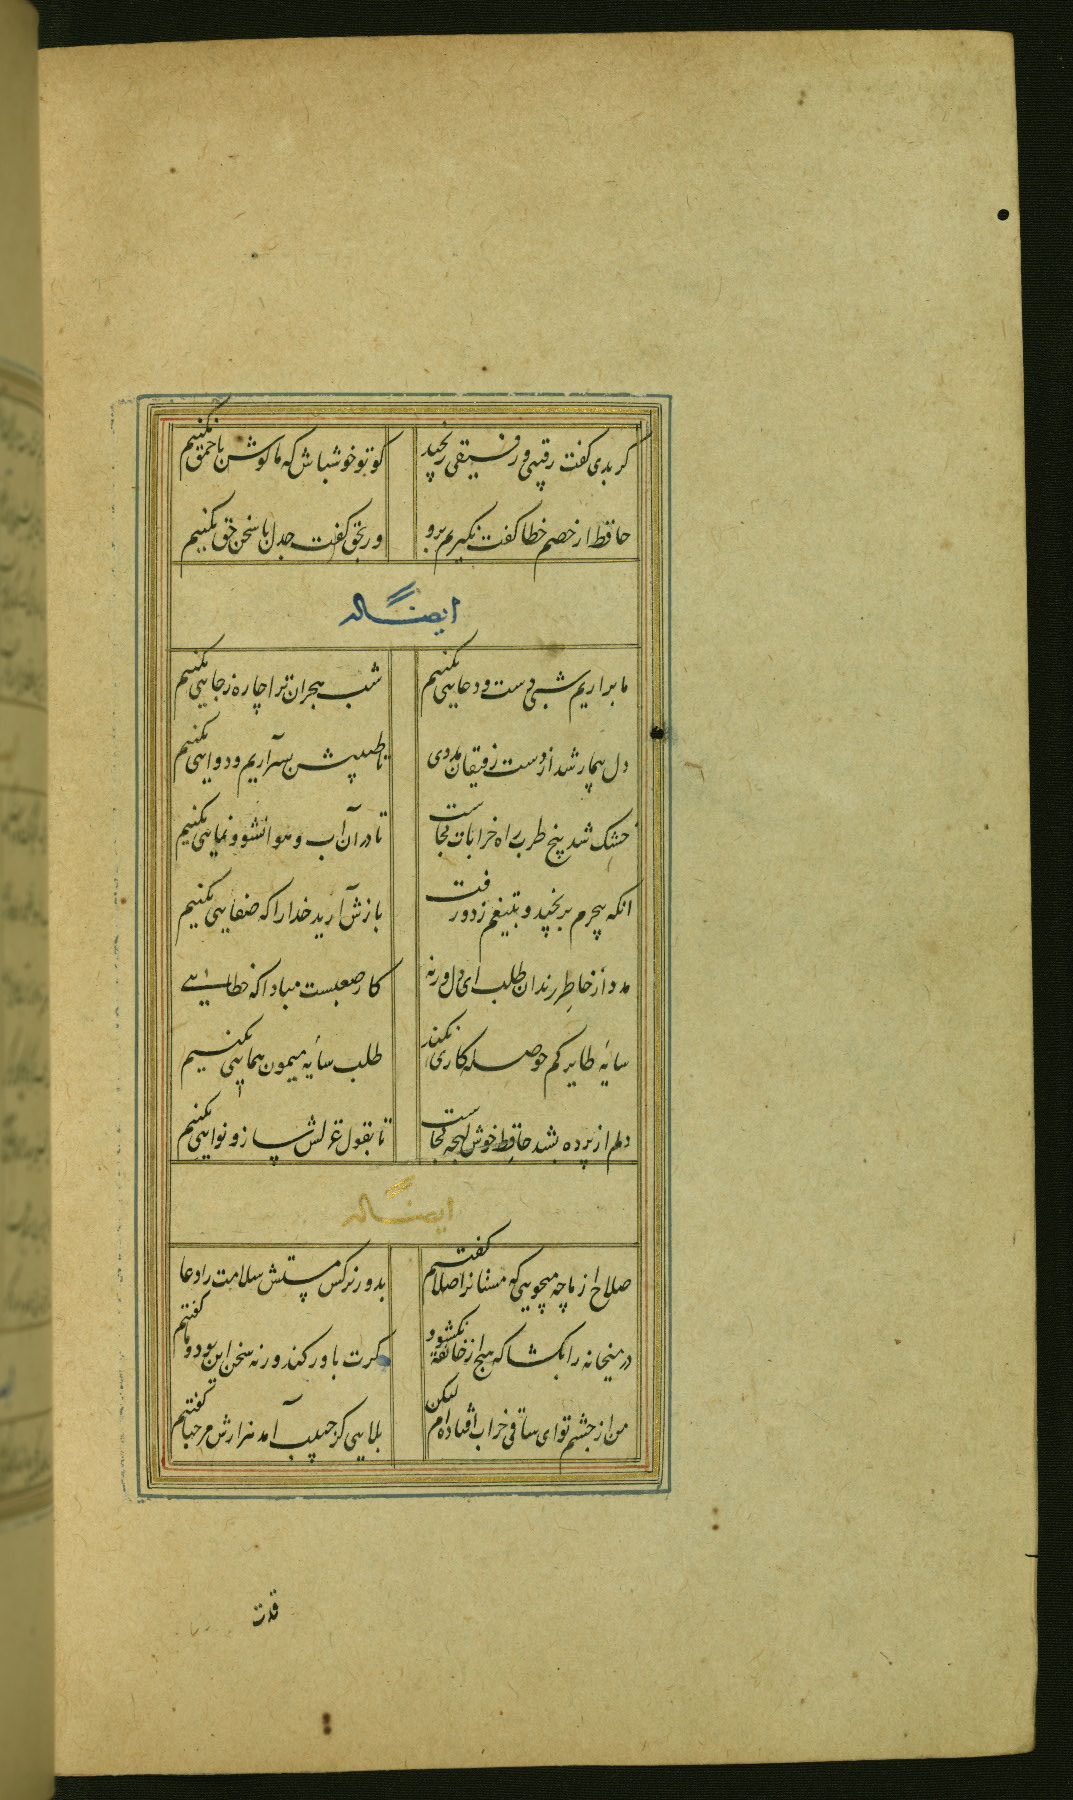 کر بدی کفت رقیبی و رفیقی رنجید کو تو خوش باش که ما کوش باحمق نکنیم
حافظ ار خصم خطا کفت نکیریم برو ور بحق کفت جدل با سخن حق نکنیم
ایضا له
ما براریم شبی دست و دعایی بکنیم شب هجران ترا چاره ز جایی بکنیم
دل بیمار شد از دست رفیقان مددی تا طبیبش بسر آریم و دوایی بکنیم
خشک شد بیخ طرب راه خرابات کجاست تا در آن آب و هوا نشو و نمایی بکنیم
انکه بیجرم برنجید و بتیغم زد و رفت بازش آرید خدا را که صفایی بکنیم
مدد از خاطر رندان طلب ای دل ورنه کار صعبست مبادا که خطایی
سایه طایر کم حوصله کاری نکند طلب سایه میمون همایی بکنیم
دلم از پرده بشد حافظ خوش لهجه کجاست تا بقول غزلش ساز و نوایی بکنیم
ایضا له
صلاح از ما چه میجویی که مستانرا صلا کفتیم بدور نرکس مستش سلامت را دعا کفتیم
در میخانه را بکشا که هیچ از خانقه نکشود کرت باور کند ورنه سخن این بود و ما کفتیم
من از چشم تو ای ساقی خراب افتاده ام لیکن بلایی کز حبیب آمد هزارش مرحبا کفتیم
قدت